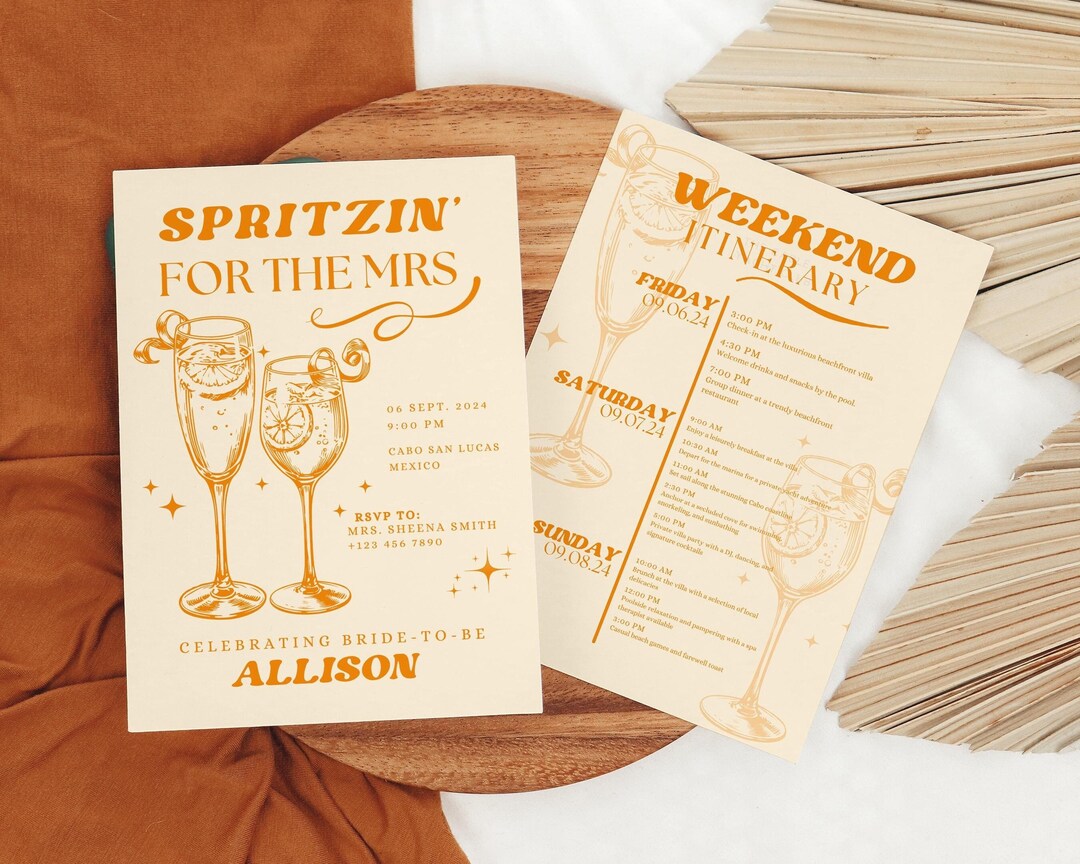 SPRITZIN'
FOR THE MRS
06 SEPT. 2024
9:00 PM
CABO SAN LUCAS
MEXICO
RSVP TO:
MRS. SHEENA SMITH
+123 456 7890
CELEBRATING BRIDE-TO-BE
ALLISON
WEEKEND
ITINERARY
FRIDAY
09.06.24
3:00 PM
Check-in at the luxurious beachfront villa
4:30 PM
Welcome drinks and snacks by the pool.
7:00 PM
Group dinner at a trendy beachfront
restaurant
SATURDAY
09.07.24
9:00 AM
Enjoy a leisurely breakfast at the villa
10:30 AM
Depart for the marina for a private yacht adventure
11:00 AM
Set sail along the stunning Cabo coastline
2:30 PM
Anchor at a secluded cove for swimming,
snorkeling, and sunbathing
5:00 PM
Private villa party with a DJ, dancing, and
signature cocktails
SUNDAY
09.08.24
10:00 AM
Brunch at the villa with a selection of local
delicacies
12:00 PM
Poolside relaxation and pampering with a spa
therapist available
3:00 PM
Casual beach games and farewell toast